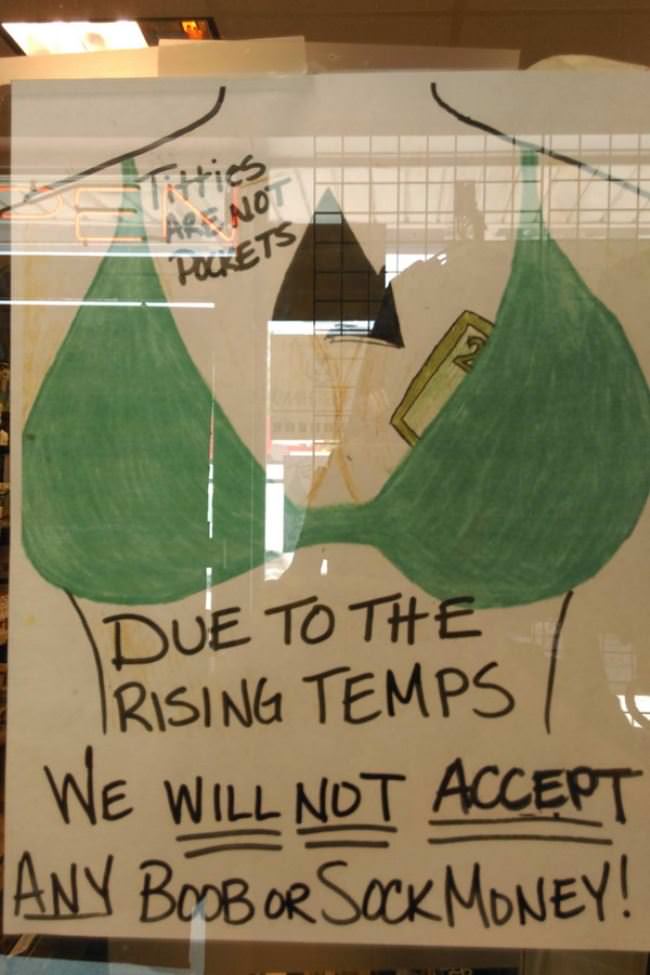 PEN
Titties
ARE NOT
POCKETS
2
DUE TO THE
RISING TEMPS
WE WILL NOT ACCEPT
ANY BOOB OR SOCK MONEY!